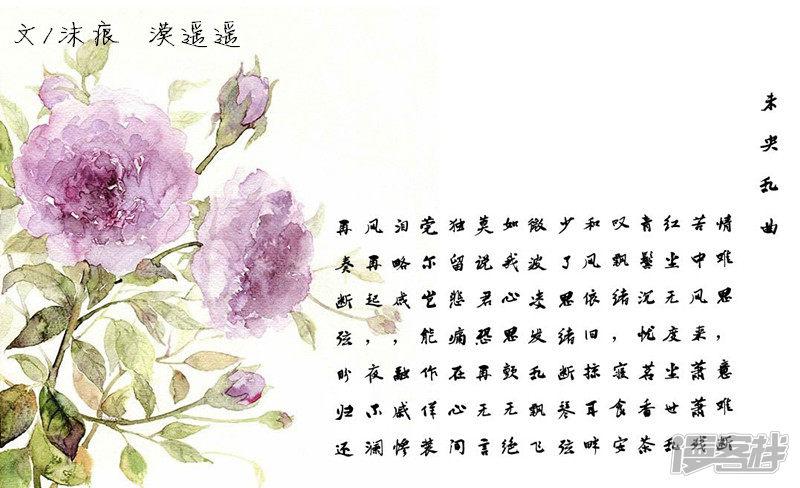 文/沫痕 漠遥遥
未央乱曲
情难思，意难断
苦中风来萧萧残
红尘无度尘世乱
青鬓沉忧茗香茶
叹飘绪，寝食安
和风依旧掠耳畔
少了思绪断琴弦
微波凌发乱飘飞
如我心思无绝
莫说君恐再无言
独留悲痛在心间
莞尔岂能作佯装
泪略咸，融戚惨
风再起，夜澜
再奏断弦盼归还
漫客栈